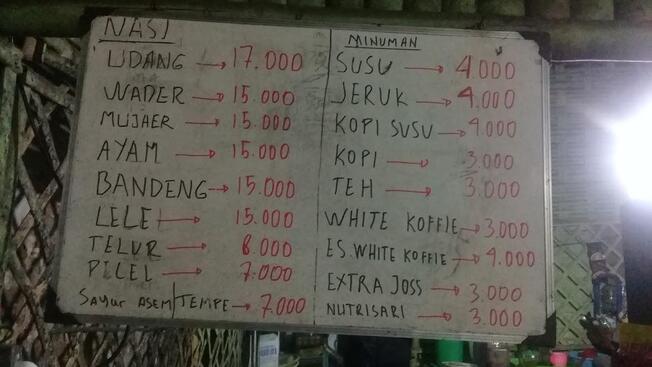 NASI
UDANG → 17.000
WADER → 15.000
MUJAER → 15.000
AYAM → 15.000
BANDENG → 15.000
LELE → 15.000
TELUR → 8.000
PILEL → 7.000
SAYUR ASEM / TEMPE → 7.000
MINUMAN
SUSU → 4.000
JERUK → 4.000
KOPI SUSU → 4.000
KOPI → 3.000
TEH → 3.000
WHITE KOFFIE → 3.000
ES. WHITE KOFFIE → 4.000
EXTRA JOSS → 3.000
NUTRISARI → 3.000